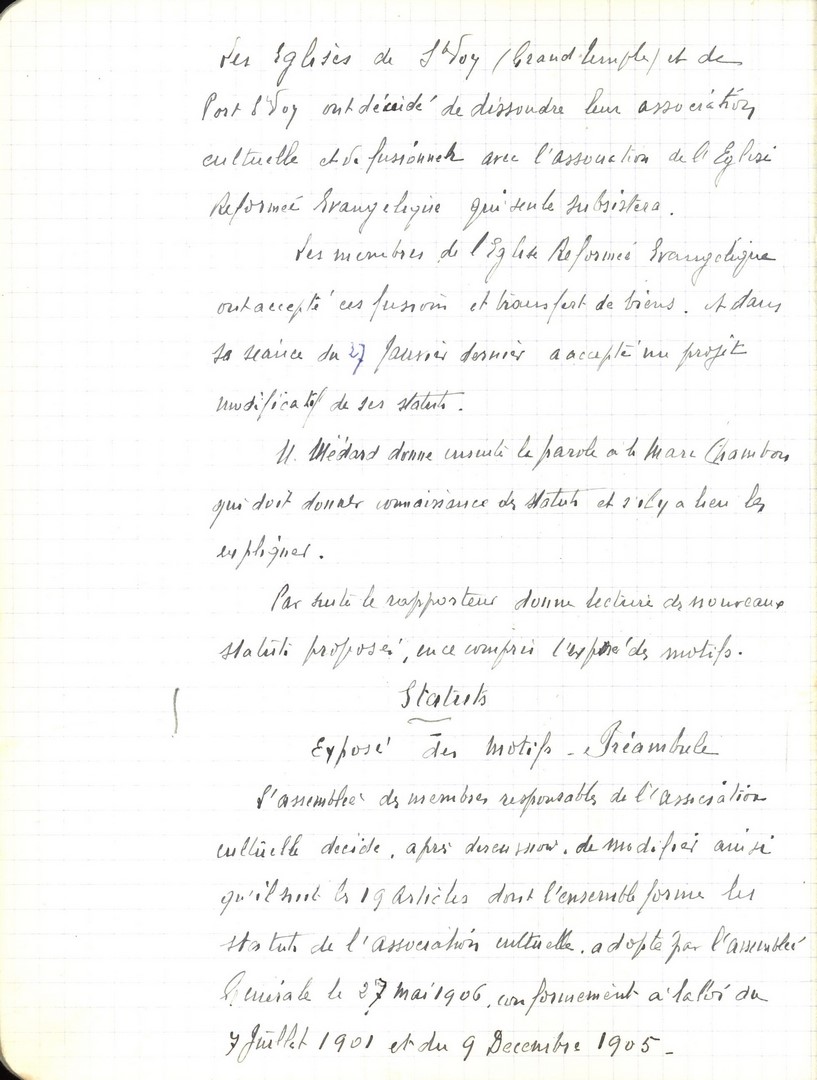 Les Eglises de St Voy (Grand temple) et de
Port St Voy ont décidé de dissoudre leur association
cultuelle et de fusionner avec l'association de l'Eglise
Reformeé Evangelique qui seule subsistera.
Les membres de l'Eglise Reformeé Evangelique
ont accepté ces fusions et transfert de biens. et dans
sa seance du 27 Janvier dernier a accepté un projet
modificatif de ses statuts.
M. Médard donne ensuite la parole a Me Marc Chambon
qui doit donner connaissance des statuts et s'il y a lieu les
expliquer.
Par suite le rapporteur donne lecture des nouveaux
statuts proposés, en ce compris l'exposé des motifs.
Statuts
Exposé des Motifs - Préambule
L'assembleé des membres responsables de l'association
cultuelle decide, après discussion, de modifier ainsi
qu'il suit les 19 articles dont l'ensemble forme les
statuts de l'association cultuelle, adopté par l'assembleé
Generale le 27 Mai 1906, conformement a la loi du
7 Juillet 1901 et du 9 Decembre 1905 -